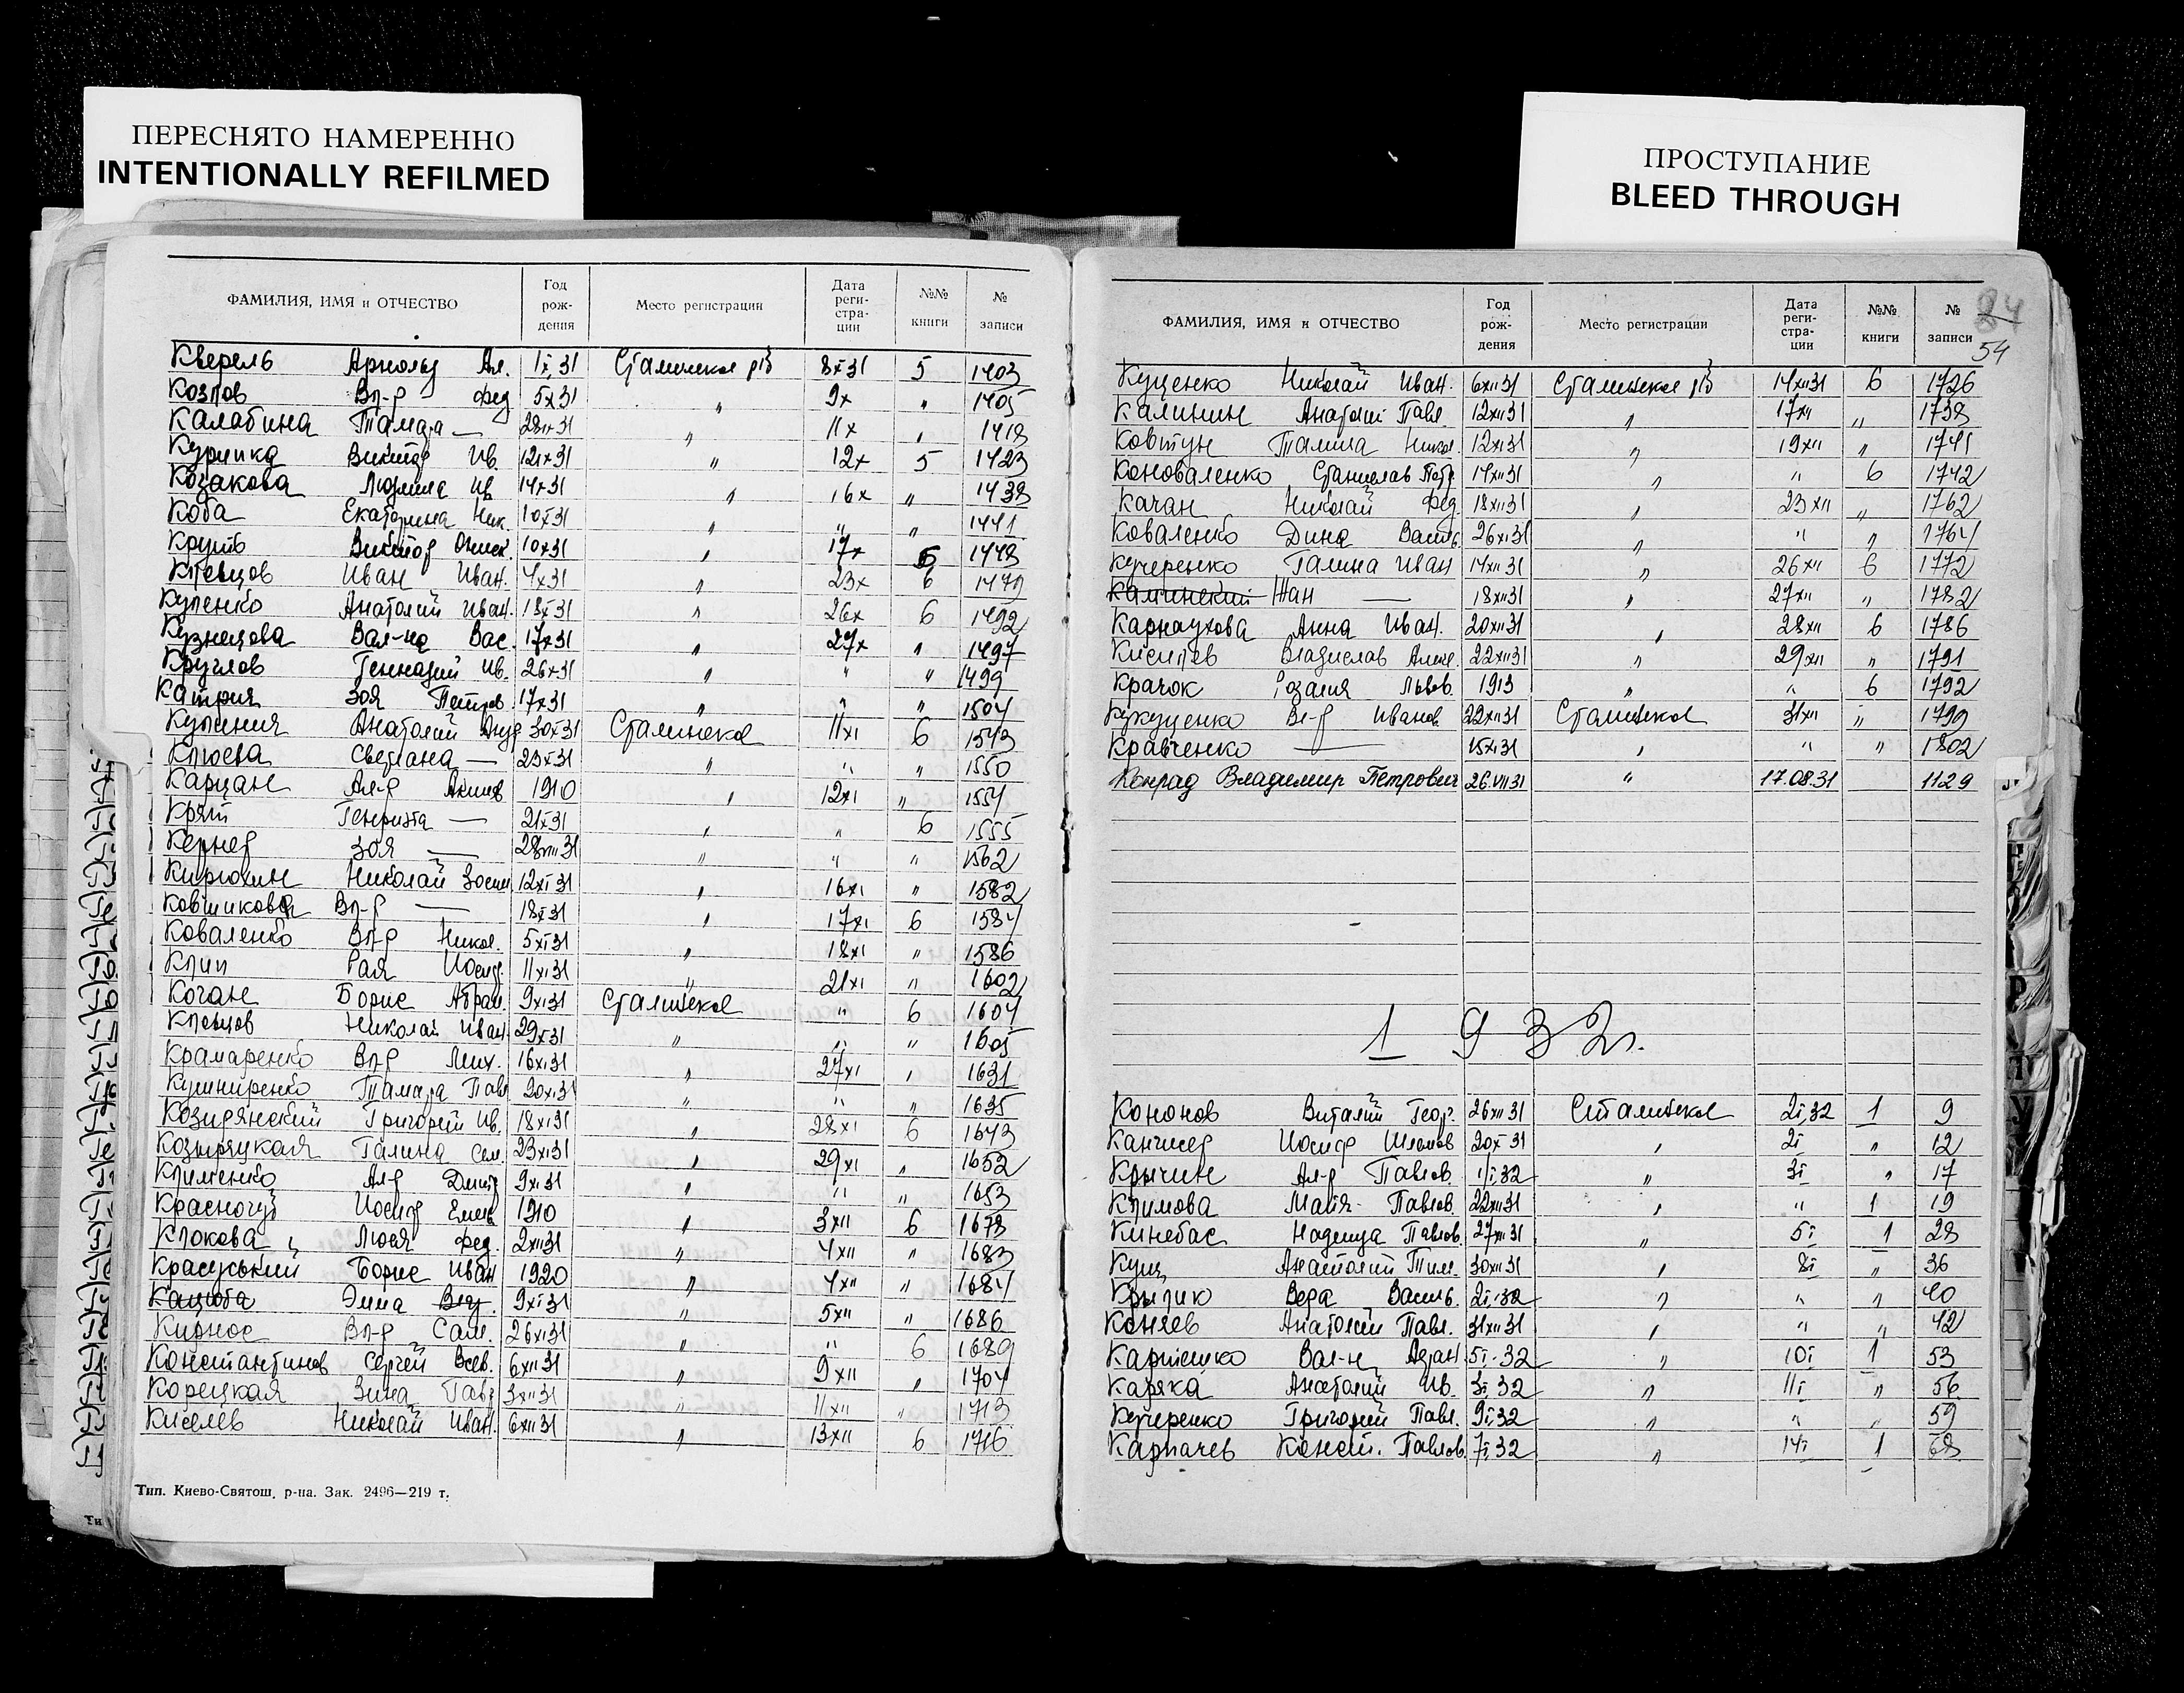 ПЕРЕСНЯТО НАМЕРЕННО
INTENTIONALLY REFILMED
ПРОСТУПАНИЕ
BLEED THROUGH
ФАМИЛИЯ, ИМЯ и ОТЧЕСТВО Год рож- дения Место регистрации Дата реги- стра- ции №№ книги № записи
Кверель Арнольд Ал. 1x31 Сталинское 8x31 5 1403
Козлов Вл-р Фед 5x31 " 9x " 1405
Калабина Тамара — 28ix31 " 11x " 1418
Курипка Виктор Ив. 12x31 " 12x 5 1423
Козакова Людмила Ив. 14x31 " 16x " 1438
Коба Екатерина Ник. 10x31 " " " 1441
Круть Виктор 10x31 " 17x 5 1448
Клевцов Иван Иван. 4x31 " 23x 6
Купенко Анатолий Иван. 18x31 " 26x 6 1492
Кузнецова Вал-на Вас. 17x31 " 27x " 1497
Круглов Геннадий Ив. 26x31 " " " 1499
Катрич Зоя Петров 17x31 " " " 1504
Анатолий Анд 30x31 Сталинское 11xi 6 1543
Клюева Светлана — 23x31 " " " 1550
Карцан Ал-р 1910 " 12xi " 1554
Генриэта — 21x31 " " 6 1555
Кернер Зоя — 28viii31 " " " 1562
Кирюхин Николай Зосим. 12xi31 " 16xi " 1582
Ковшикова Вл-р — 18x31 " 17xi 6 1584
Коваленко Вл-р Никол. 5xi31 " 18xi " 1586
Клип Рая Иосиф. 11xi31 " 21xi " 1602
Коган Борис Абрам. 9xi31 Сталинское " 6 1604
Клевцов Николай Иван. 29x31 " " " 1605
Крамаренко Вл-р Мих. 16xi31 " 27xi " 1631
Кушниренко Тамара Павл 20xi31 " " " 1635
Козирянский Григорий Ив. 18xi31 " 28xi 6 1643
Козыряцкая Галина Сем. 23xi31 " 29xi " 1652
Клименко Ал-р Дмитр 9xi31 " " " 1653
Иосиф Емел 1910 " 3xii 6 1678
Клокова Люся Фед. 2xii31 " 4xii " 1683
Красуський Борис Иван 1920 " 4xii " 1684
Кацюба Эмма 9xi31 " 5xii " 1686
Кирнос Вл-р Сам. 26xi31 " " 6 1689
Константинов Сергей Всев. 6xii31 " 9xii " 1704
Корецкая Зина Гавр 3xii31 " 11xii " 1713
Киселев Николай Иван. 6xii31 " 13xii 6 1716
Тип. Киево-Святош. р-на. Зак. 2496—219 т.
24
54
ФАМИЛИЯ, ИМЯ и ОТЧЕСТВО Год рож- дения Место регистрации Дата реги- стра- ции №№ книги № записи
Куценко Николай Иван. 6xii31 Сталинское 14xii31 6 1726
Калинин Анатолий Павл. 12xii31 " 17xii " 1738
Ковтун Галина Никол. 12xi31 " 19xii " 1741
Коноваленко Станислав Петр. 14xii31 " " 6 1742
Качан Николай Фед. 18xii31 " 23xii " 1762
Коваленко Дина Василь. 26xi31 " " " 1764
Кучеренко Галина Иван 14xii31 " 26xii 6 1772
Калинский Жан — 18xii31 " 27xii " 1782
Карнаухова Анна Иван. 20xii31 " 28xii 6 1786
Киселев Владислав Алекс. 22xii31 " 29xii " 1791
Крачок Розалия Львов. 1913 " " 6 1792
Кукуценко Вл-р Иванов. 22xii31 Сталинское 31xii " 1799
Кравченко — 15xi31 " " " 1802
Конрад Владимир Петрович 26.VII31 " 17.08.31 1129
1932г.
Кононов Виталий Геор. 26xii31 Сталинское 2i,32 1 9
Иосиф Шломов 20x31 " 2i " 12
Крычин Ал-р Павлов. 1/i32 " 3i " 17
Климова Майя Павлов. 22xii31 " " 1 19
Кинебас Надежда Павлов. 27xii31 " 5i 1 28
Куц Анатолий Тим. 30xii31 " 8i " 36
Крылко Вера Василь. 2i,32 " " " 40
Коняев Анатолий Павл. 31xii31 " " " 42
Карпенко Вал-н Адам. 5i-32 " 10i 1 53
Каряка Анатолий Ив. 3i,32 " 11i " 56
Кучеренко Григорий Павл. 9i,32 " " " 59
Карпачев Конст. Павлов. 7i,32 " 14i 1 68